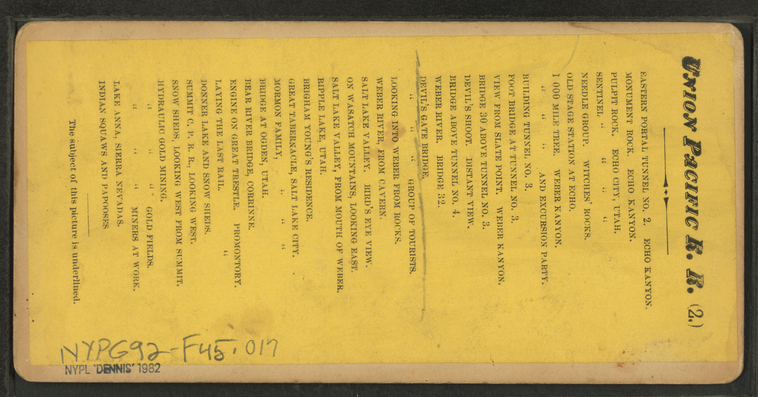 Union Pacific R. R. (2.)
EASTERN PORTAL TUNNEL NO. 2. ECHO KANYON.
MONUMENT ROCK. ECHO KANYON.
PULPIT ROCK. ECHO CITY, UTAH.
SENTINEL " " " "
NEEDLE GROUP. WITCHES' ROCKS.
OLD STAGE STATION AT ECHO.
1 000 MILE TREE. WEBER KANYON.
" " " " AND EXCURSION PARTY.
BUILDING TUNNEL NO. 3.
FOOT BRIDGE AT TUNNEL NO. 3.
VIEW FROM SLATE POINT. WEBER KANYON.
BRIDGE 30 ABOVE TUNNEL NO. 3.
DEVIL'S SHOOT. DISTANT VIEW.
BRIDGE ABOVE TUNNEL NO. 4.
WEBER RIVER. BRIDGE 32.
DEVIL'S GATE BRIDGE.
" " " GROUP OF TOURISTS.
LOOKING INTO WEBER FROM ROCKS.
WEBER RIVER, FROM CAVERN.
SALT LAKE VALLEY. BIRD'S EYE VIEW.
ON WASATCH MOUNTAINS, LOOKING EAST.
SALT LAKE VALLEY, FROM MOUTH OF WEBER.
RIPPLE LAKE, UTAH.
BRIGHAM YOUNG'S RESIDENCE.
GREAT TABERNACLE, SALT LAKE CITY.
MORMON FAMILY, " "
BRIDGE AT OGDEN, UTAH.
BEAR RIVER BRIDGE, CORRINNE.
ENGINE ON GREAT TRESTLE. PROMONTORY.
LAYING THE LAST RAIL, "
DONNER LAKE AND SNOW SHEDS.
SUMMIT C. P. R. R., LOOKING WEST.
SNOW SHEDS, LOOKING WEST FROM SUMMIT.
HYDRAULIC GOLD MINING.
" " " GOLD FIELDS.
" " " MINERS AT WORK.
LAKE ANNA, SIERRA NEVADAS.
INDIAN SQUAWS AND PAPOOSES
The subject of this picture is underlined.
NYPG92-F45.017
NYPL 'DENNIS' 1982